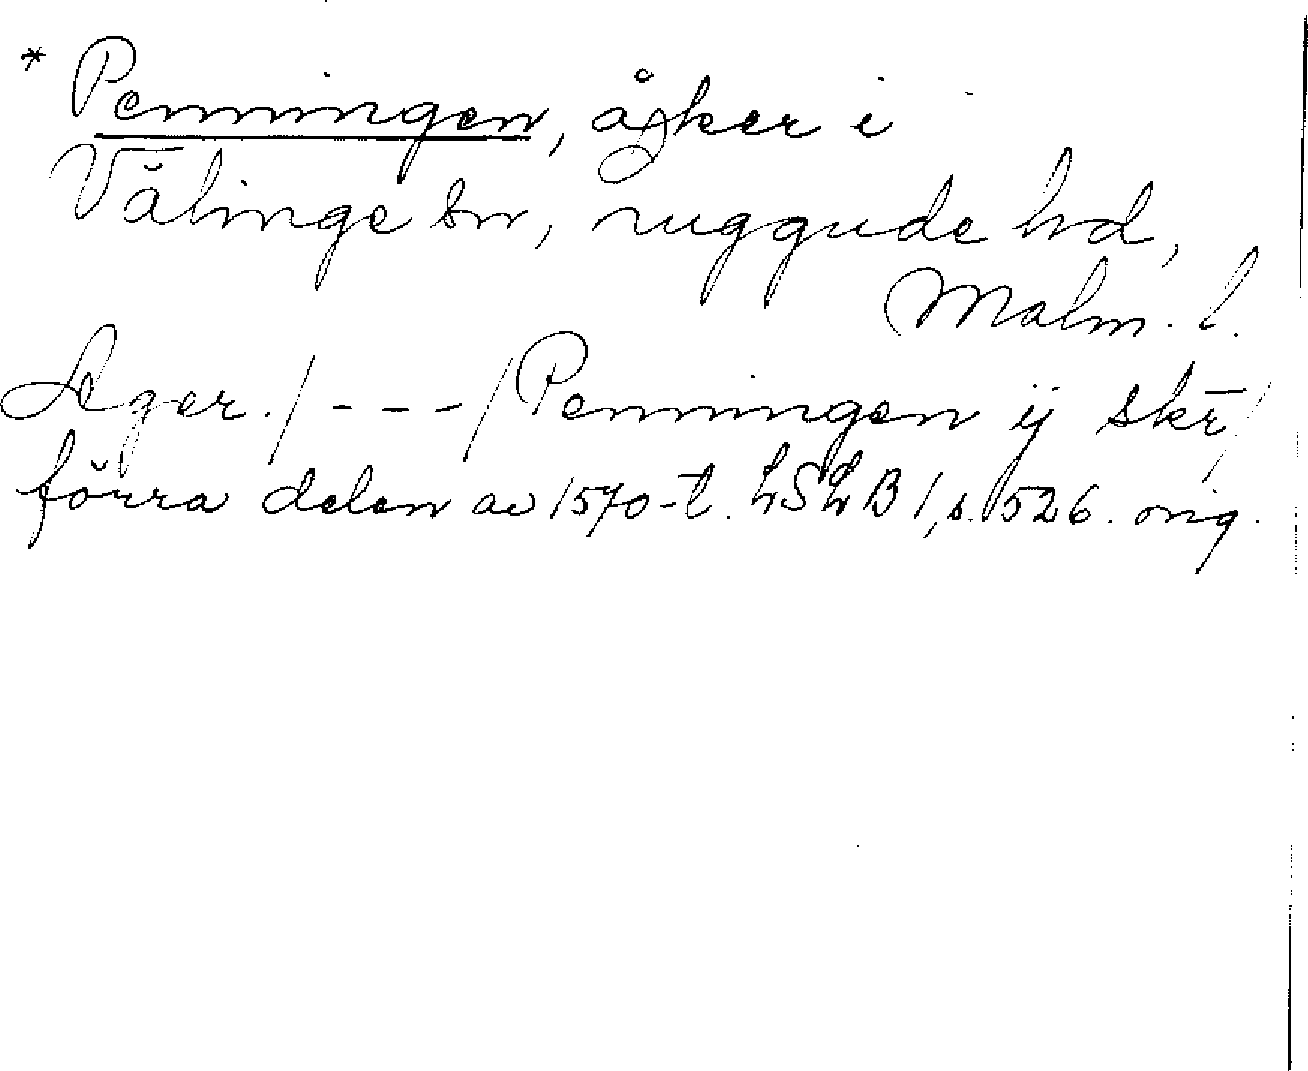 * Penningen, åker i
Välinge sn, ruggude hd,
Malm. l.
Ager. / - - - / Penningen ij skr̄ /
förra delen av 1570-t. LSLB 1, s. 1526. orig.